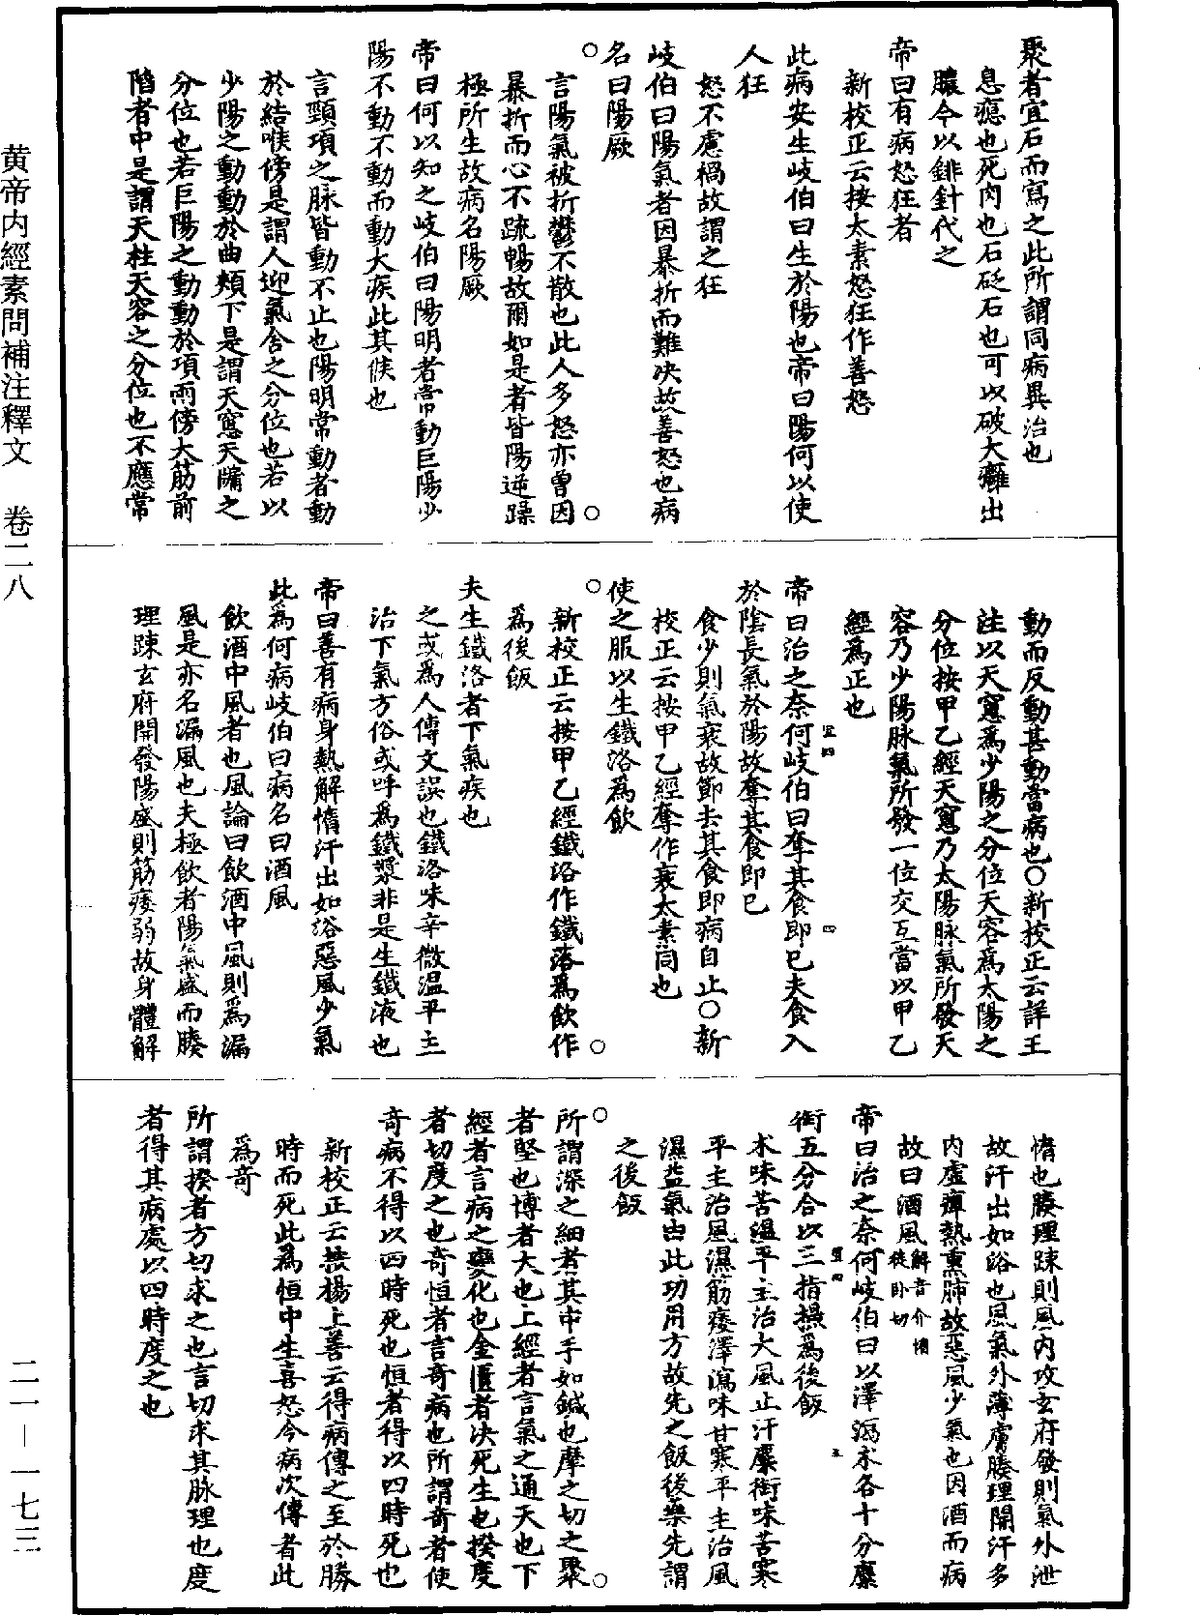 黄帝内經素問補注釋文　卷二八
聚者宜石而寫之此所謂同病異治也
息瘜也死肉也石砭石也可以破大癰出
膿今以鈹針代之
帝曰有病怒狂者
新校正云按太素怒狂作善怒
此病安生岐伯曰生於陽也帝曰陽何以使
人狂
怒不慮禍故謂之狂
岐伯曰陽氣者因暴折而難決故善怒也病
名曰陽厥
言陽氣被折鬱不散也此人多怒亦曾因
暴折而心不疏暢故爾如是者皆陽逆躁
極所生故病名陽厥
帝曰何以知之岐伯曰陽明者常動巨陽少
陽不動不動而動大疾此其候也
言頸項之脉皆動不止也陽明常動者動
於結喉傍是謂人迎氣舍之分位也若以
少陽之動動於曲頰下是謂天窻天牖之
分位也若巨陽之動動於項兩傍大筋前
陷者中是謂天柱天容之分位也不應常
動而反動甚動當病也○新校正云詳王
注以天窻爲少陽之分位天容爲太陽之
分位按甲乙經天窻乃太陽脉氣所發天
容乃少陽脉氣所發一位交互當以甲乙
經爲正也
帝曰治之奈何岐伯曰奪其食即已夫食入
於陰長氣於陽故奪其食即已
食少則氣衰故節去其食即病自止○新
校正云按甲乙經奪作衰太素同也
使之服以生鐵洛爲飲
新校正云按甲乙經鐵洛作鐵落爲飲作
爲後飯
夫生鐵洛者下氣疾也
之或爲人傳文誤也鐵洛味辛微温平主
治下氣方俗或呼爲鐵漿非是生鐵液也
帝曰善有病身熱解惰汗出如浴惡風少氣
此爲何病岐伯曰病名曰酒風
飲酒中風者也風論曰飲酒中風則爲漏
風是亦名漏風也夫極飲者陽氣盛而腠
理踈玄府開發陽盛則筋痿弱故身體解
惰也腠理踈則風内攻玄府發則氣外泄
故汗出如浴也風氣外薄膚腠理開汗多
内虚癉熱熏肺故惡風少氣也因酒而病
故曰酒風解音介惰徒卧切
帝曰治之奈何岐伯曰以澤瀉朮各十分麋
銜五分合以三指撮爲後飯
朮味苦温平主治大風止汗麋銜味苦寒
平主治風濕筋痿澤瀉味甘寒平主治風
濕益氣由此功用方故先之飯後藥先謂
之後飯
所謂深之細者其中手如鍼也摩之切之聚
者堅也博者大也上經者言氣之通天也下
經者言病之變化也金匱者決死生也揆度
者切度之也奇恒者言奇病也所謂奇者使
奇病不得以四時死也恒者得以四時死也
新校正云按楊上善云得病傳之至於勝
時而死此爲恒中生喜怒今病次傳者此
爲奇
所謂揆者方切求之也言切求其脉理也度
者得其病處以四時度之也
二一—一七三